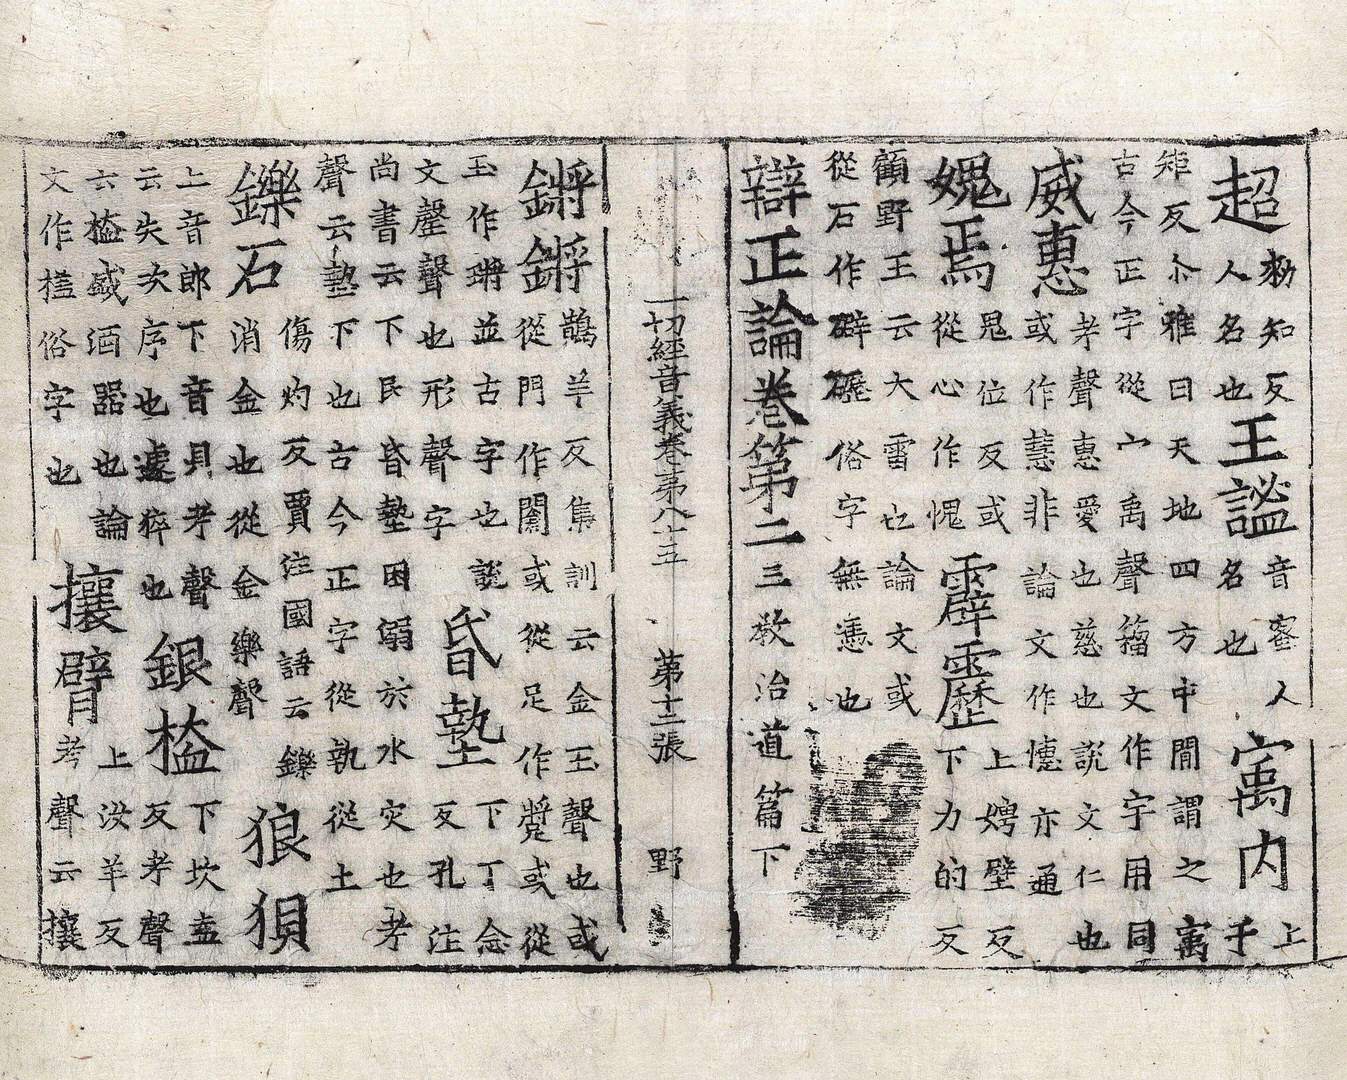 超勑知反人名也王謐音蜜人名也㝢內上于
矩反尒雅曰天地四方中間謂之㝢
古今正字從宀禹聲籀文作宇用同
威惠考聲惠愛也慈也說文仁也或作慧非論文作憓亦通
媿焉鬼位反或從心作愧霹靂上娉壁反下力的反
顧野王云大雷也論文或
從石作礔礰俗字無憑也
辯正論卷第二三教治道篇下
一切經音義卷苐八十五 第十二張 野
鏘鏘鵲羊反集訓云金玉聲也或從門作闣或從足作蹡或從
玉作瑲並古字也說文鏧聲也形聲字昏墊下丁念反孔注
尚書云下民昏墊困溺於水灾也考
聲云墊下也古今正字從執從土
鑠石傷灼反賈注國語云鑠消金也從金樂聲狼狽
上音郎下音貝考聲
云失次序也遽猝也銀榼上汝羊反下坎盍反考聲
云榼盛酒器也論
文作𣛴俗字也攘臂考聲云攘